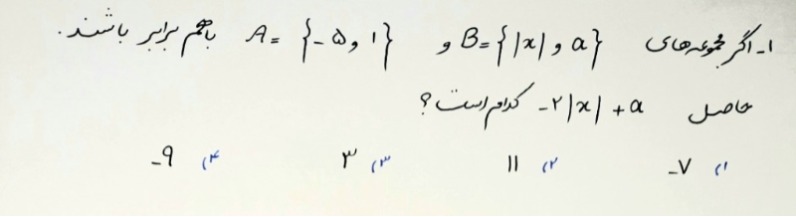 ۱- اگر مجموعه‌های B = {|x| و a} و A = {-۵ و ۱} باهم برابر باشند.
حاصل -۲|x| + a کدام است؟
۱) -۷ ۲) ۱۱ ۳) ۳ ۴) -۹